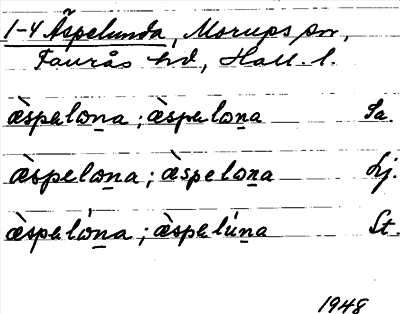 1-4 Äspelunda, Morups sn,
Faurås hd, Hall. l.
æ̀spelo̱na ; æ̀spelo̱na Sa.
æ̀spelo̱na ; æ̀spelo̱na Lj.
æ̀spəló̱na ; æ̀spəlú̱na St.
1948